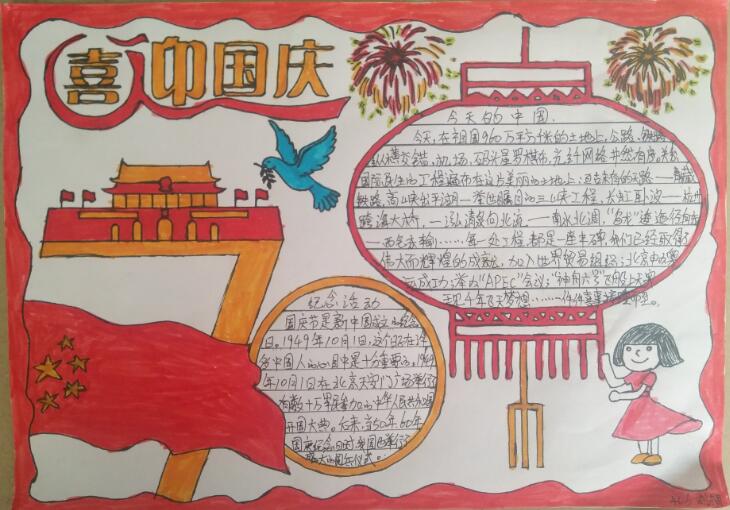 喜迎国庆
今天的中国
今天,在祖国960万平方米的土地上,公路、铁路
纵横交错,机场、码头星罗棋布,光纤网络井然有序,关
国际民生的工程遍布在这片美丽的土地上:迈
铁路,高山峡出平湖——举世瞩目的三峡工程,长虹卧波——杭州
跨海大桥,一泓清泉向北流——南水北调,"乌龙"
——西气东输……每一处工程,都是一座丰碑,我们已经取得
伟大而辉煌的成就,加入世界贸易组织;北京申奥
成功;举办"APEC"会议;"神舟六号"飞船上天
千年飞天梦想……一件件喜事
纪念活动
国庆节是新中国成立的纪念
日。1949年10月1日,这个日子在许
多中国人的心目中是十分重要的。1949
年10月1日在北京天安门广场举行
有数十万军民参加的中华人民共和国
开国大典。后来,当50年、60年
国庆纪念日时我国也举行
盛大的阅兵仪式。